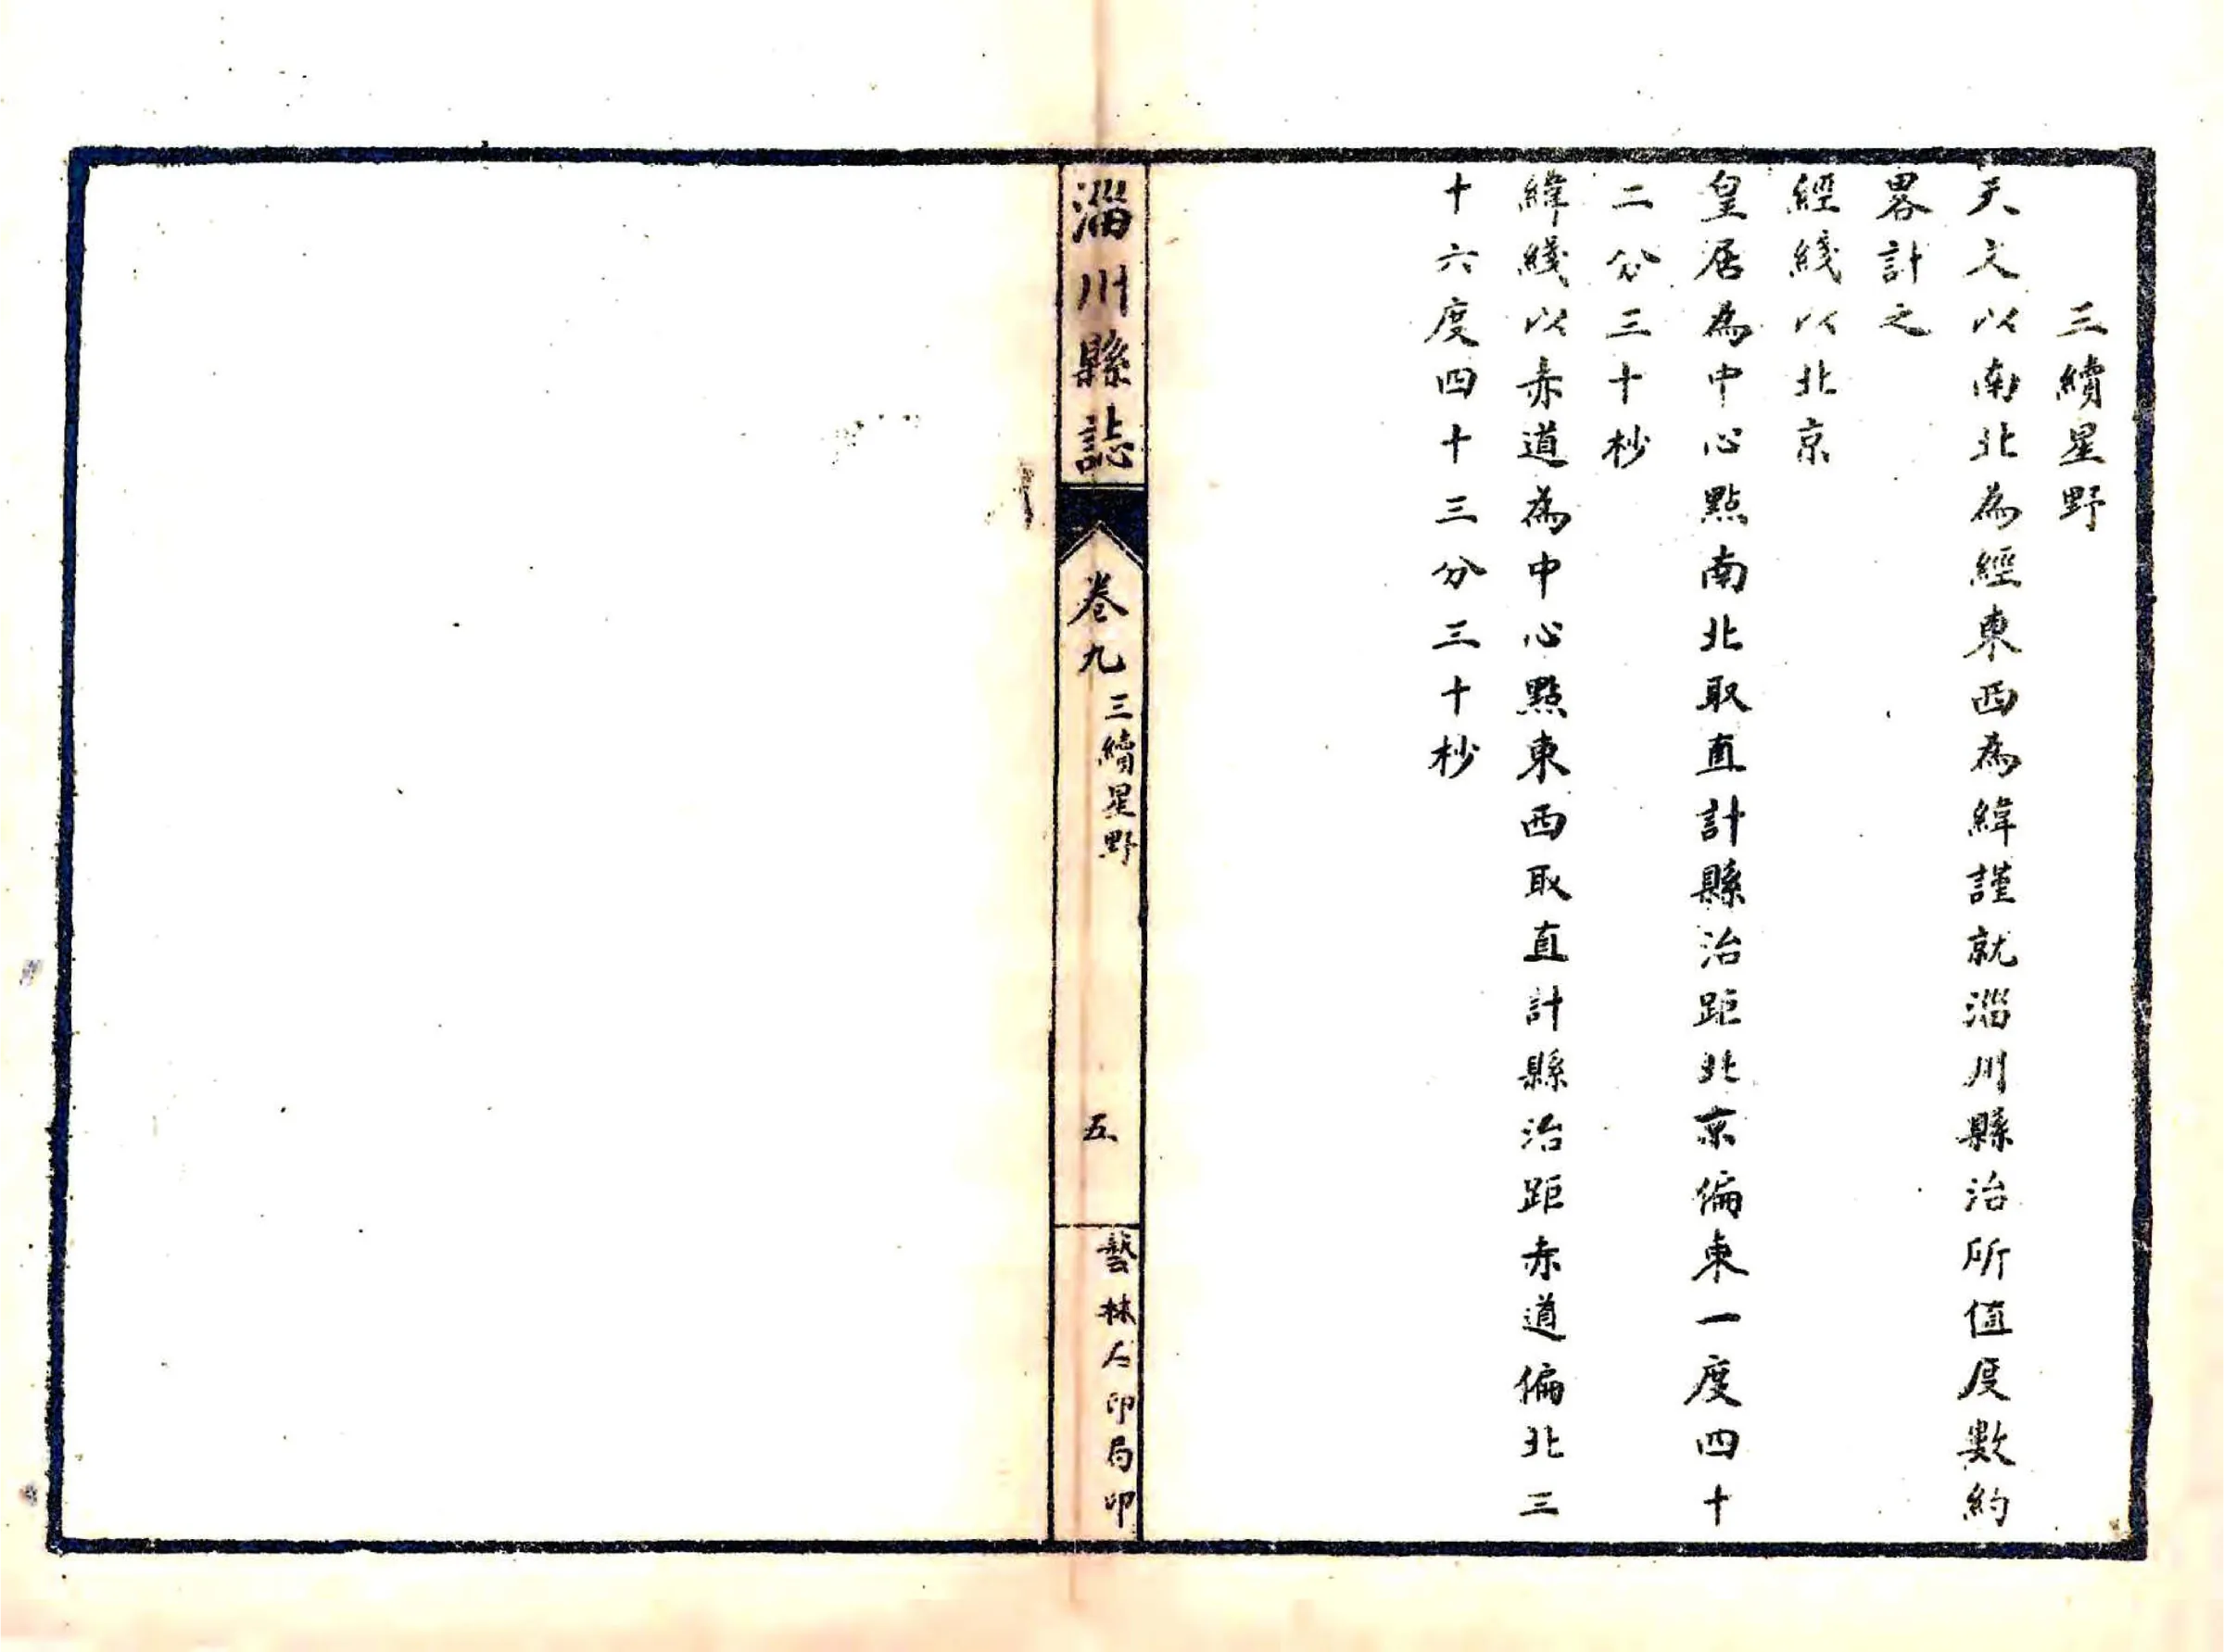 三續星野
天文以南北為經東西為緯謹就淄川縣治所值度數約
畧計之
經綫以北京
皇居為中心點南北取直計縣治距北京偏東一度四十
二分三十杪
緯綫以赤道為中心點東西取直計縣治距赤道偏北三
十六度四十三分三十杪
淄川縣誌
卷九
三續星野
五
藝林石印局印